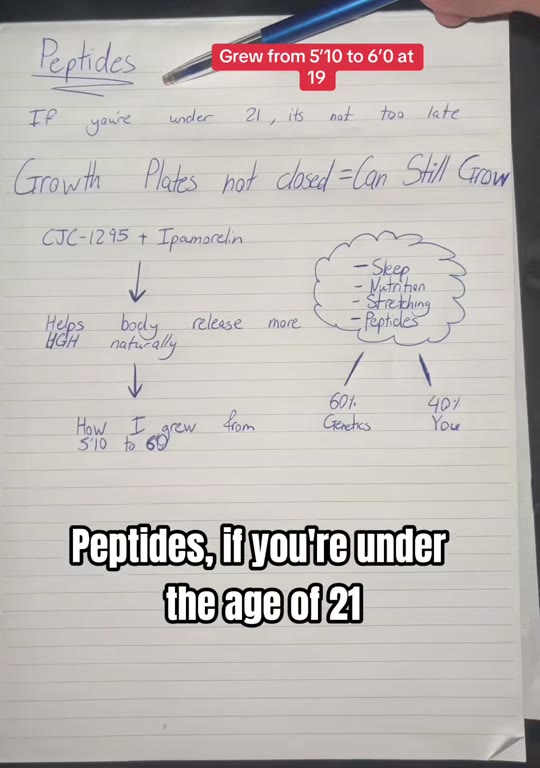 Peptides
Grew from 5'10 to 6'0 at
19
If you're under 21, its not too late
Growth Plates not closed = Can Still Grow
CJC-1295 + Ipamorelin
Helps body release more
HGH naturally
How I grew from
5'10 to 60
- Sleep
- Nutrition
- Stretching
- Peptides
60%
Genetics
40%
You
Peptides, if you're under
the age of 21